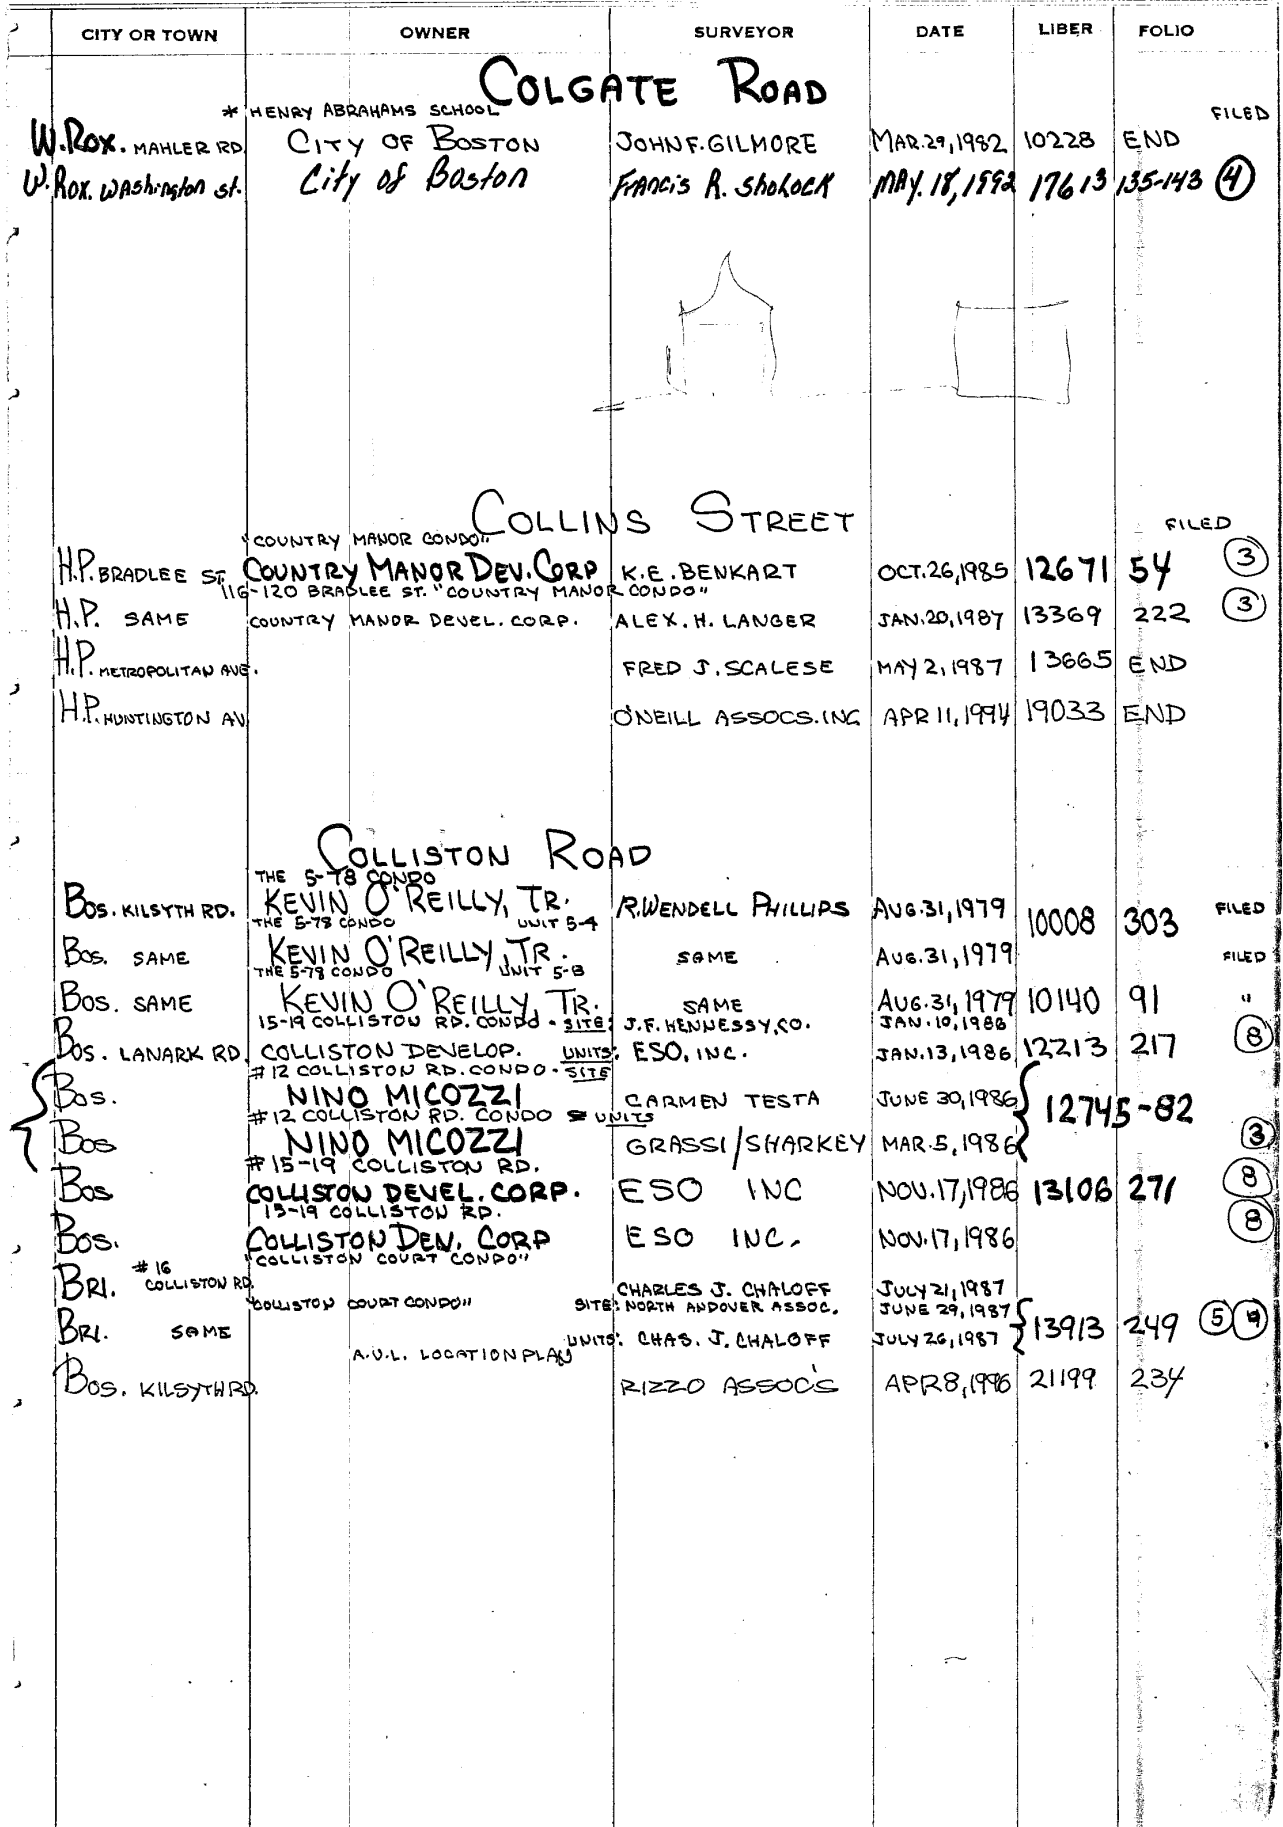 CITY OR TOWN OWNER SURVEYOR DATE LIBER FOLIO
COLGATE ROAD
* HENRY ABRAHAMS SCHOOL FILED
W. ROX. MAHLER RD. CITY OF BOSTON JOHN F. GILMORE MAR. 29, 1982 10228 END
W. Rox. Washington St. City of Boston Francis R. Sholock MAY. 18, 1992 17613 135-143 4
COLLINS STREET
"COUNTRY MANOR CONDO" FILED
H.P. BRADLEE ST. COUNTRY MANOR DEV. CORP K.E. BENKART OCT. 26, 1985 12671 54 3
116-120 BRADLEE ST. "COUNTRY MANOR CONDO"
H.P. SAME COUNTRY MANOR DEVEL. CORP. ALEX. H. LANGER JAN. 20, 1987 13369 222 3
H.P. METROPOLITAN AVE. FRED J. SCALESE MAY 2, 1987 13665 END
H.P. HUNTINGTON AV O'NEILL ASSOCS. INC APR 11, 1994 19033 END
COLLISTON ROAD
THE 5-78 CONDO
BOS. KILSYTH RD. KEVIN O'REILLY, TR. R. WENDELL PHILLIPS AUG. 31, 1979 10008 303 FILED
THE 5-78 CONDO UNIT 5-4
BOS. SAME KEVIN O'REILLY, TR. SAME AUG. 31, 1979 FILED
THE 5-78 CONDO UNIT 5-B
BOS. SAME KEVIN O'REILLY, TR. SAME AUG. 31, 1979 10140 91 "
15-19 COLLISTON RD. CONDO - SITE: J.F. HENNESSY, CO. JAN. 10, 1986
BOS. LANARK RD. COLLISTON DEVELOP. UNITS: ESO, INC. JAN. 13, 1986 12213 217 8
#12 COLLISTON RD. CONDO - SITE
BOS. NINO MICOZZI CARMEN TESTA JUNE 30, 1986 12745-82
#12 COLLISTON RD. CONDO = UNITS
BOS NINO MICOZZI GRASSI/SHARKEY MAR. 5, 1986 3
#15-19 COLLISTON RD.
BOS COLLISTON DEVEL. CORP. ESO INC NOV. 17, 1986 13106 271 8
15-19 COLLISTON RD.
BOS. COLLISTON DEN. CORP ESO INC. NOV. 17, 1986 8
"COLLISTON COURT CONDO"
BRI. #16 COLLISTON RD. CHARLES J. CHALOFF JULY 21, 1987
"COLLISTON COURT CONDO" SITE: NORTH ANDOVER ASSOC. JUNE 29, 1987
BRI. SAME UNITS: CHAS. J. CHALOFF JULY 26, 1987 13913 249 5
A.U.L. LOCATION PLAN
BOS. KILSYTH RD. RIZZO ASSOC'S APR 8, 1996 21199 234